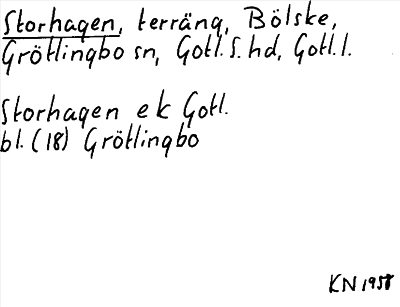 Storhagen, terräng, Bölske,
Grötlingbo sn, Gotl. S. hd, Gotl. l.
Storhagen ek Gotl.
bl. (18) Grötlingbo
KN 1958